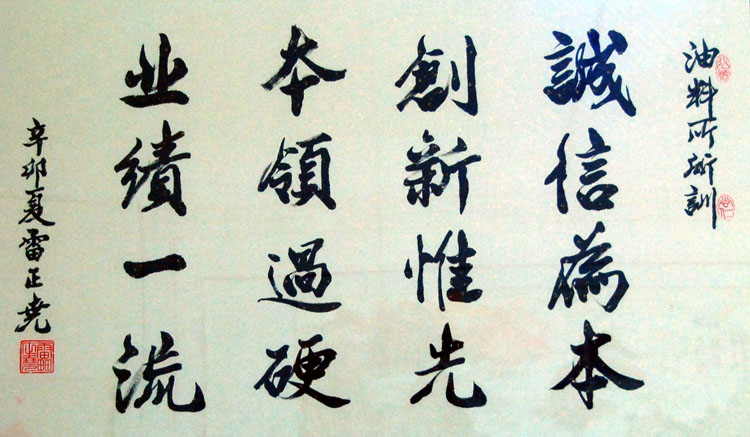 油料所所訓
誠信為本
創新惟先
本領過硬
业績一流
辛卯夏雷正堯